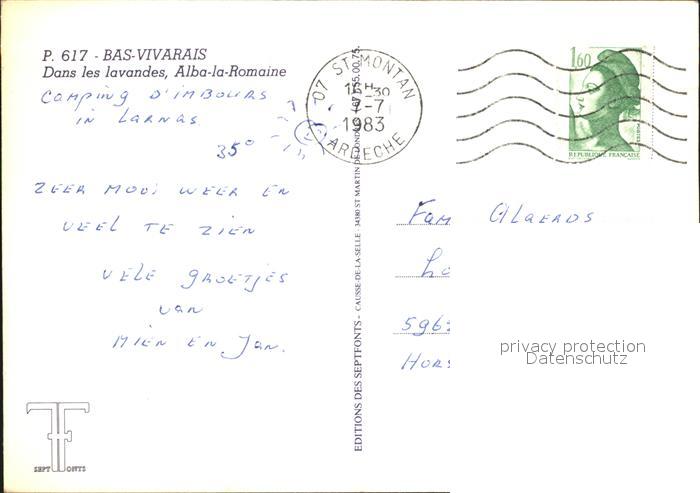 P. 617 - BAS-VIVARAIS
Dans les lavandes, Alba-la-Romaine
CAMPING D'IMBOURS
IN LARNAS
35°
ZEER MOOI WEER EN
VEEL TE ZIEN
VELE GROETJES
VAN
MIEN EN JAN.
SEPT FONTS
EDITIONS DES SEPTFONTS - CAUSSE-DE-LA-SELLE - 34380 ST MARTIN DE LONDRES
55.00.75.
07 ST MONTAN
16H30
7-7
1983
ARDECHE
1,60
REPUBLIQUE FRANÇAISE
FAM
596
HORS
privacy protection
Datenschutz